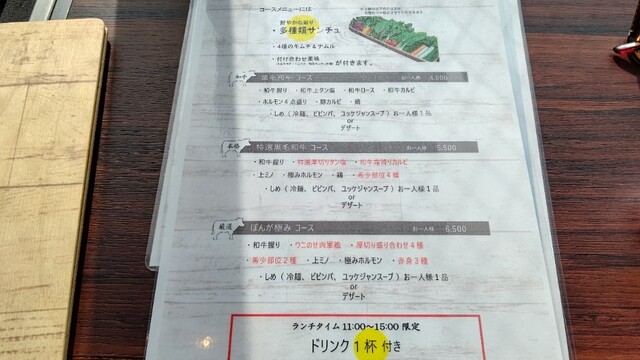 コースメニューには
鮮やかな彩り
・多種類サンチュ
・4種のキムチ&ナムル
・付け合わせ薬味
が付きます。
和牛 黒毛和牛コース お一人様 4,500
・和牛握り ・和牛上タン塩 ・和牛ロース ・和牛カルビ
・ホルモン4点盛り ・豚カルビ ・鶏
・しめ(冷麺、ビビンバ、ユッケジャンスープ)お一人様1品
or
デザート
本格 特選黒毛和牛 コース お一人様 5,500
・和牛握り ・特選厚切りタン塩 ・和牛霜降りカルビ
・上ミノ ・極みホルモン ・鶏 ・希少部位4種
・しめ(冷麺、ビビンバ、ユッケジャンスープ)お一人様1品
or
デザート
厳選 ぼんが極み コース お一人様 6,500
・和牛握り ・ウニのせ肉軍艦 ・厚切り盛り合わせ4種
・希少部位2種 ・上ミノ ・極みホルモン ・赤身3種
・しめ(冷麺、ビビンバ、ユッケジャンスープ)お一人様1品
or
デザート
ランチタイム 11:00〜15:00 限定
ドリンク1杯付き